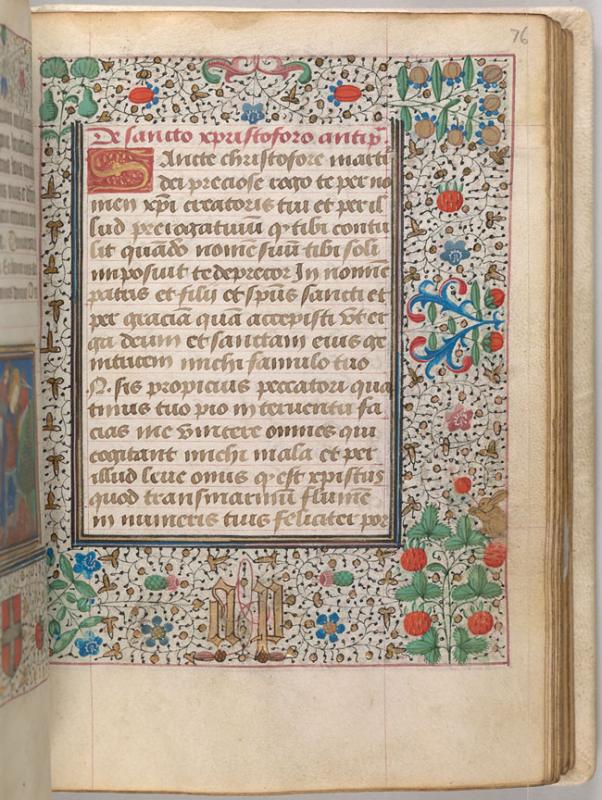 76
De sancto xpristoforo antiph̄.
Sancte christofore marti
dei preciose rogo te per no
men xp̄i creatoris tui et per il
lud prerogatiuū qꝫ tibi contu
lit quādo nomē suū tibi soli
imposuit te deprecor In nomīe
patris et filij et sp̄us sancti et
per graciā quā accepisti vt er
ga deum et sanctam eius ge
nitricem michi famulo tuo
N. sis propicius peccatori qua
tinus tuo pio interuentu fa
cias me vincere omnes qui
cogitant michi mala et per
illud leue onus qꝫ est xp̄istus
quod transmarinū flumē
in numeris tuis feliciter por